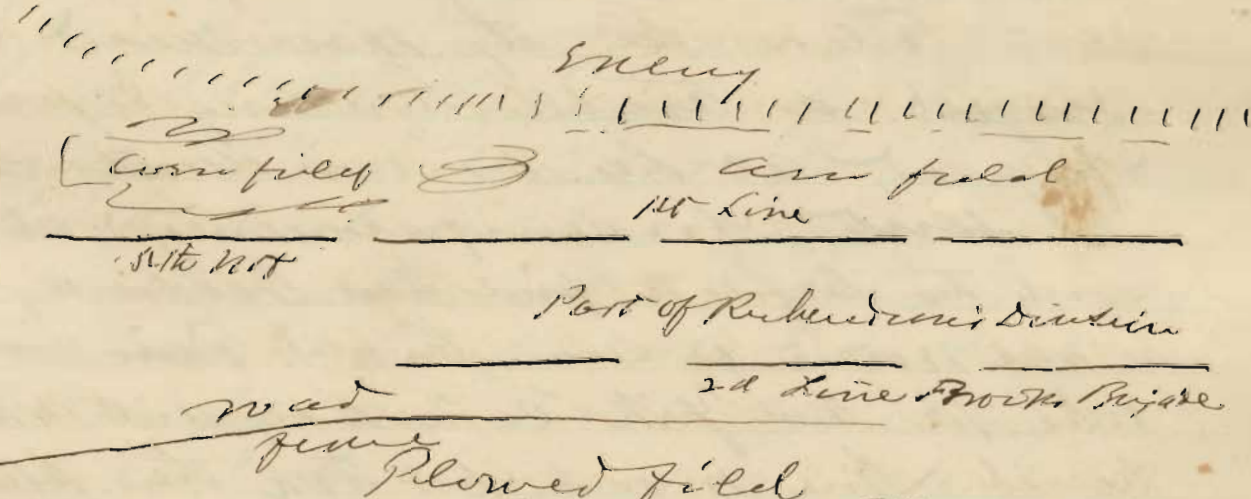 Enemy
Corn field Corn field
1st Line
Part of Richardsons Division
2d Line Brooks Brigade
road
fence
Plowed field